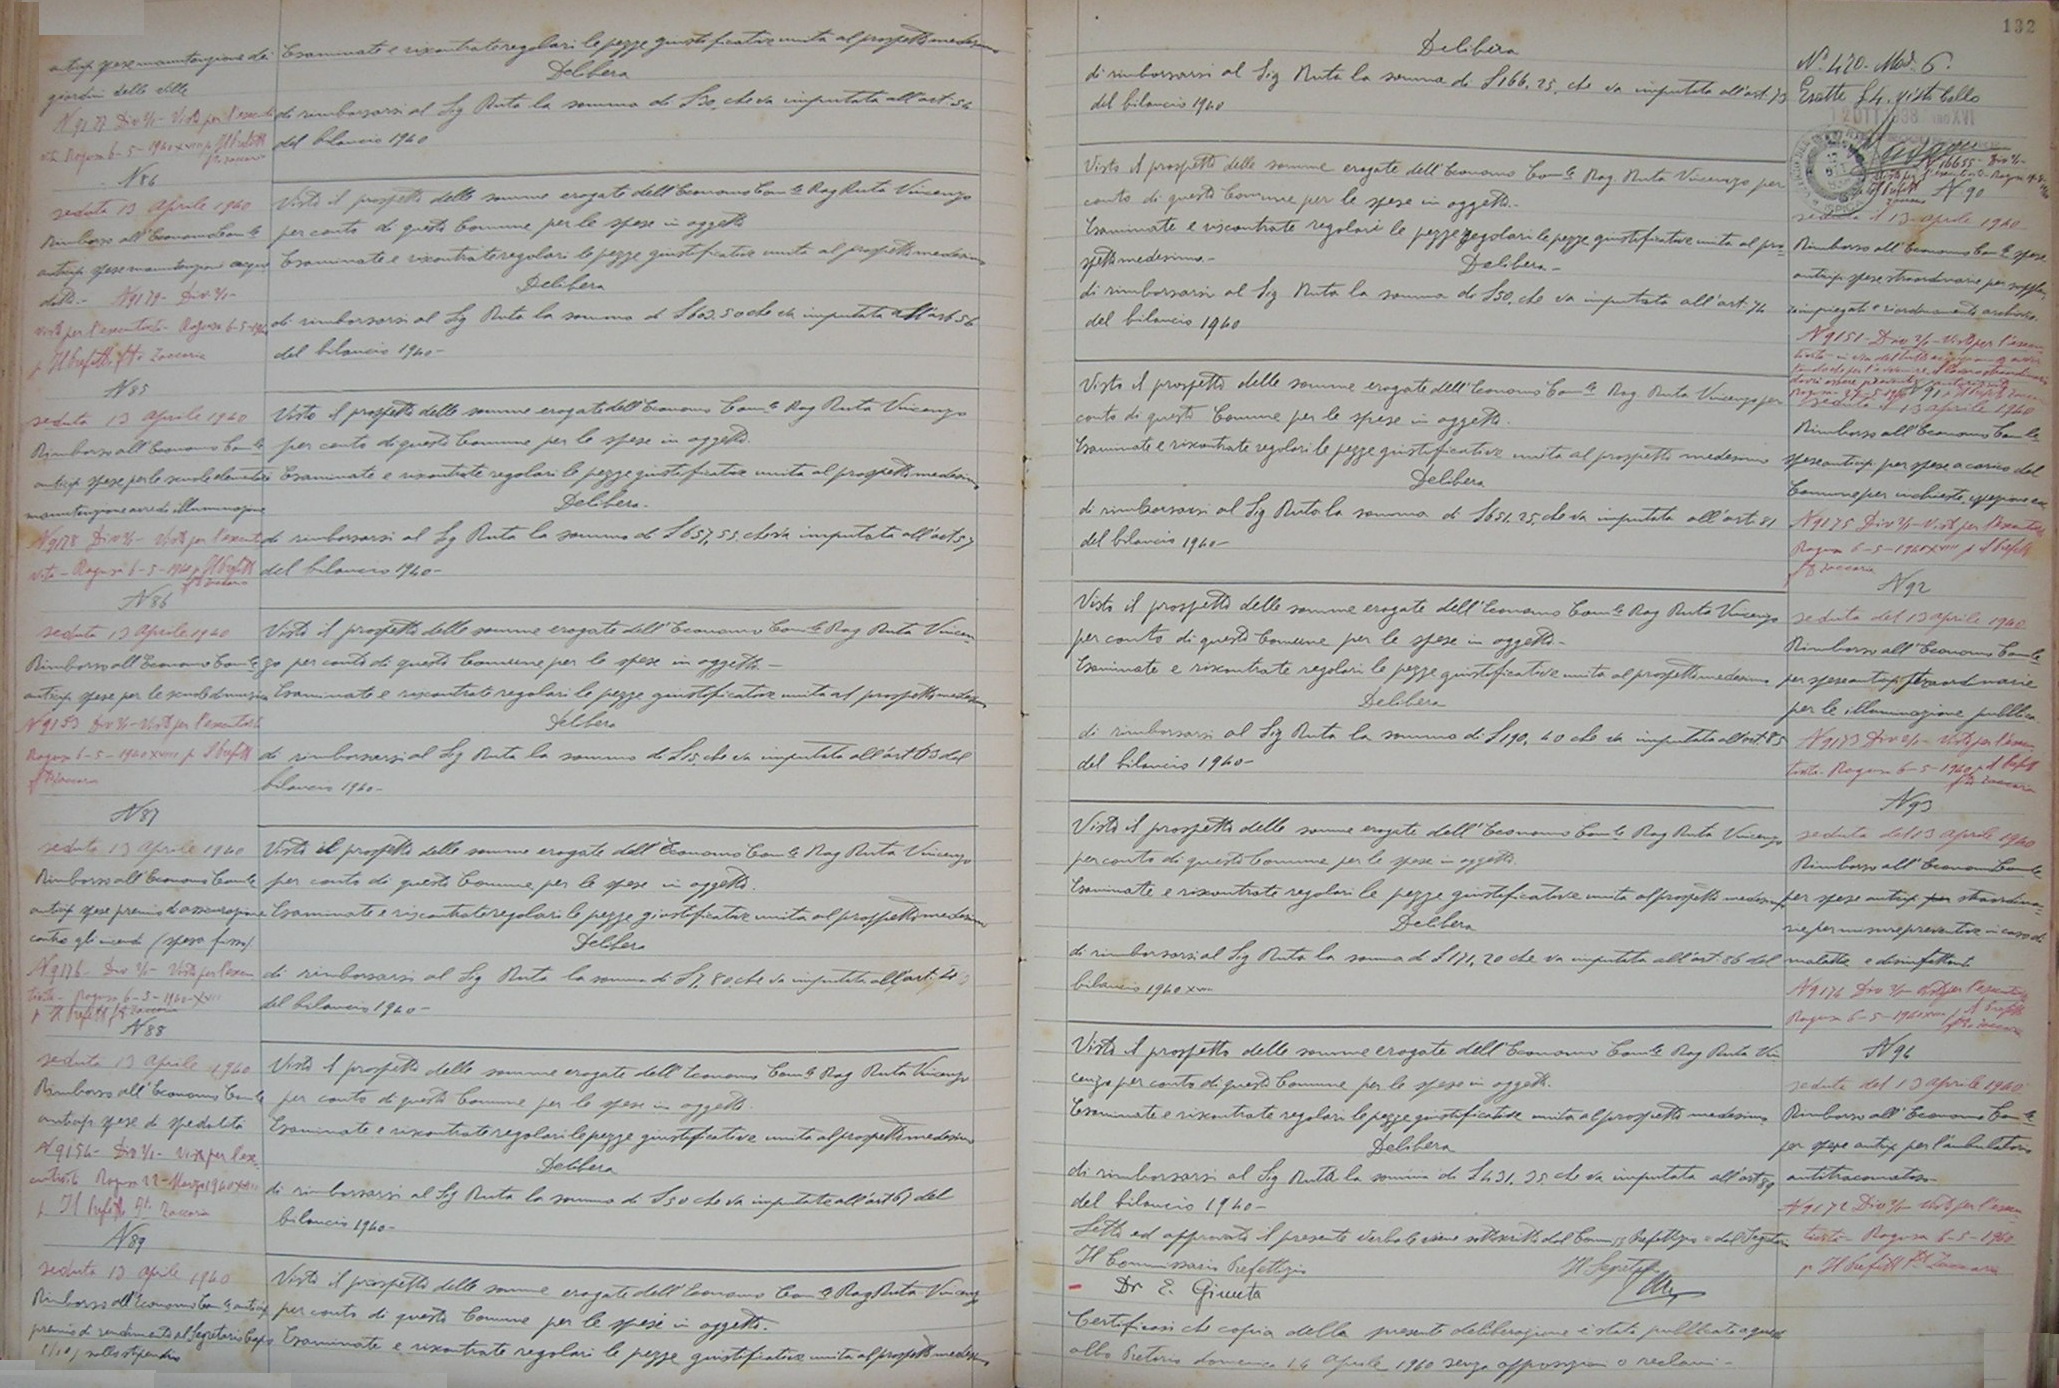 antip. spese manutenzione dei
giardini delle ville
N 9177 Div 2/1 - Visto per l'esecuti
vità Ragusa 6-5-1940 XVIII p. Il Prefetto
fto Zaccaria
Esaminate e riscontrate regolari le pezze giustificative unite al prospetto medesimo
Delibera
di rimborsarsi al Sig Ruta la somma di £ 30, che va imputata all'art. 54
del bilancio 1940
N 84
seduta 13 Aprile 1940
Rimborso all'Economo Com.le
antecip. spese manutenzione acque
dotto.- N 9179 - Div 2/1 -
visto per l'esecutività - Ragusa 6-5-1940
p. Il Prefetto fto Zaccaria
Visto il prospetto delle somme erogate dell'Economo Com.le Rag Ruta Vincenzo
per conto di questo Comune per le spese in oggetto
Esaminate e riscontrate regolari le pezze giustificative unite al prospetto medesimo
Delibera
di rimborsarsi al Sig Ruta la somma di £ 603.50 che va imputata all'art 56
del bilancio 1940-
N 85
seduta 13 Aprile 1940
Rimborso all'Economo Com.le
antecip. spese per le scuole elementari
manutenzione arredo illuminazione
N 9178 Div 2/1 - Visto per l'esecuti
vità - Ragusa 6-5-1940 p. Il Prefetto
fto Zaccaria
Visto il prospetto delle somme erogate dell'Economo Com.le Rag Ruta Vincenzo
per conto di questo Comune per le spese in oggetto.
Esaminate e riscontrate regolari le pezze giustificative unite al prospetto medesimo
Delibera.
di rimborsarsi al Sig Ruta la somma di £ 657,55, che va imputata all'art 57
del bilancio 1940-
N 86
seduta 13 Aprile 1940
Rimborso all'Economo Com.le
antecip. spese per le scuole di musica
N 9153 Div 2/1 - Visto per l'esecutività
Ragusa 6-5-1940 XVIII p. Il Prefetto
fto Zaccaria
Visto il prospetto delle somme erogate dell'Economo Com.le Rag Ruta Vincen-
zo per conto di questo Comune per le spese in oggetto -
Esaminate e riscontrate regolari le pezze giustificative unite al prospetto medesimo
Delibera
di rimborsarsi al Sig Ruta la somma di £ 15, che va imputata all'art 63 del
bilancio 1940-
N 87
seduta 13 Aprile 1940
Rimborso all'Economo Com.le
antecip. spese premio di assicurazione
contro gli incendi (spesa fissa)
N 9176 - Div 2/1 - Visto per l'esecu
tività - Ragusa 6-5-1940-XVIII
p. Il Prefetto fto Zaccaria
Visto il prospetto delle somme erogate dell'Economo Com.le Rag Ruta Vincenzo
per conto di questo Comune per le spese in oggetto.
Esaminate e riscontrate regolari le pezze giustificative unite al prospetto medesimo
Delibera
di rimborsarsi al Sig Ruta la somma di £ 7,80, che va imputata all'art.
del bilancio 1940 -
N 88
seduta 13 Aprile 1940
Rimborso all'Economo Com.le
antecip. spese di spedalità
N 9154 - Div 2/1 - Visto per l'ese-
cutività Ragusa 22-Marzo 1940 XVIII
p. Il Prefetto fto Zaccaria
Visto il prospetto delle somme erogate dell'Economo Com.le Rag Ruta Vincenzo
per conto di questo Comune per le spese in oggetto.
Esaminate e riscontrate regolari le pezze giustificative unite al prospetto medesimo
Delibera
di rimborsarsi al Sig Ruta la somma di £ 50 che va imputata all'art 67 del
bilancio 1940-
N 89
seduta 13 Aprile 1940
Rimborso all'Economo Com.le antecip.
premio di rendimento al Segretario Capo
1/10 sullo stipendio
Visto il prospetto delle somme erogate dell'Economo Com.le Rag Ruta Vincenzo
per conto di questo Comune per le spese in oggetto.
Esaminate e riscontrate regolari le pezze giustificative unite al prospetto medesimo
132
Delibera
di rimborsarsi al Sig Ruta la somma di £ 166,25, che va imputata all'art. 73
del bilancio 1940
N. 420 - Mod. 6.
1 2 OTT 1938 Anno XVI
N 16655 - Div 2/1 -
N 90
seduta il 13 Aprile 1940
Rimborso all'Economo Com.le spese
antecip. spese straordinarie per supplen.
ze impiegati e riordinamento archivio.
N 9151 - Div 2/1 - Visto per l'esecu-
Visto il prospetto delle somme erogate dell'Economo Com.le Rag Ruta Vincenzo per
conto di questo Comune per le spese in oggetto.-
Esaminate e riscontrate regolari le pezze regolari le pezze giustificative unite al pro-
spetto medesimo.-
Delibera -
di rimborsarsi al Sig Ruta la somma di £ 50, che va imputata all'art. 74
del bilancio 1940
N 91
seduta il 13 Aprile 1940
Rimborso all'Economo Com.le
spese antecip. per spese a carico del
Comune per inchieste, ispezioni ecc
N 9175 Div 2/1 - Visto per l'esecutività
Ragusa 6-5-1940 XVIII p. Il Prefetto
fto Zaccaria
Visto il prospetto delle somme erogate dell'Economo Com.le Rag Ruta Vincenzo per
conto di questo Comune per le spese in oggetto.
Esaminate e riscontrate regolari le pezze giustificative unite al prospetto medesimo
Delibera
di rimborsarsi al Sig Ruta la somma di £ 651,25, che va imputata all'art. 81
del bilancio 1940-
N 92
seduta del 13 Aprile 1940
Rimborso all'Economo Com.le
per spese antecip. straordinarie
per la illuminazione pubblica
N 9173 Div 2/1 - Visto per l'esecu-
tività - Ragusa 6-5-1940 p. Il Prefetto
fto Zaccaria
Visto il prospetto delle somme erogate dell'Economo Com.le Rag Ruta Vincenzo
per conto di questo Comune per le spese in oggetto-
Esaminate e riscontrate regolari le pezze giustificative unite al prospetto medesimo
Delibera
di rimborsarsi al Sig Ruta la somma di £ 190,40 che va imputata all'art. 85
del bilancio 1940-
N 93
seduta del 13 Aprile 1940
Rimborso all'Economo Com.le
per spese antecip. per straordina-
rie per misure preventive in caso di
malattie e disinfettanti
N 9174 Div 2/1 - Visto per l'esecutività
Ragusa 6-5-1940 XVIII p. Il Prefetto
fto Zaccaria
Visto il prospetto delle somme erogate dell'Economo Com.le Rag Ruta Vincenzo
per conto di questo Comune per le spese in oggetto.
Esaminate e riscontrate regolari le pezze giustificative unite al prospetto medesimo
Delibera
di rimborsarsi al Sig Ruta la somma di £ 171,20 che va imputata all'art. 86 del
bilancio 1940 XVIII
N 94
seduta del 13 Aprile 1940
Rimborso all'Economo Com.le
per spese antecip. per l'ambulatorio
antitracomatoso
N 9172 Div 2/1 - Visto per l'esecu-
tività - Ragusa 6-5-1940
p. Il Prefetto fto Zaccaria
Visto il prospetto delle somme erogate dell'Economo Com.le Rag Ruta Vin
cenzo per conto di questo Comune per le spese in oggetto.
Esaminate e riscontrate regolari le pezze giustificative unite al prospetto medesimo
Delibera
di rimborsarsi al Sig Ruta la somma di £ 431,35, che va imputata all'art 89
del bilancio 1940-
Letto ed approvato il presente verbale viene sottoscritto dal Comm.rio Prefettizio e dal Segretario
Il Commissario Prefettizio
Il Segretario
Dr E. Giunta
Certificasi che copia della presente deliberazione è stata pubblicata a questo
albo Pretorio domenica 14 Aprile 1940 senza opposizioni o reclami -